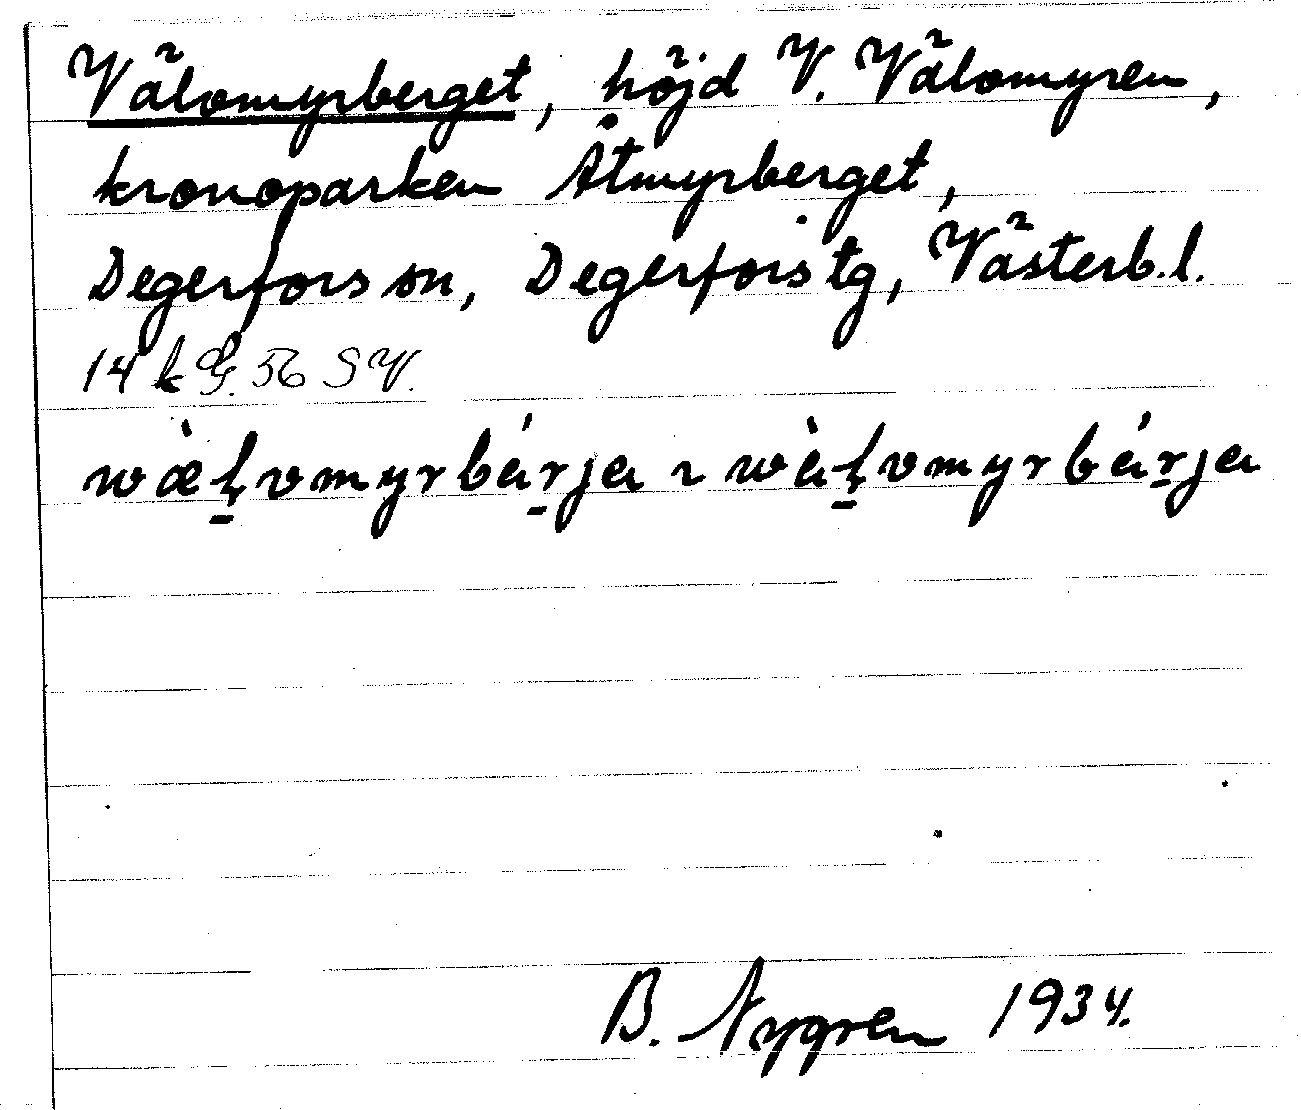 Välomyrberget, höjd V. Välomyren,
kronoparken Åtmyrberget,
Degerfors sn, Degerfors tg, Västerb.l.
14 k G. 56 SV.
wæ̀ḷvmyrbárja ɿ wàḷvmyrbárja
B. Nygren 1934.